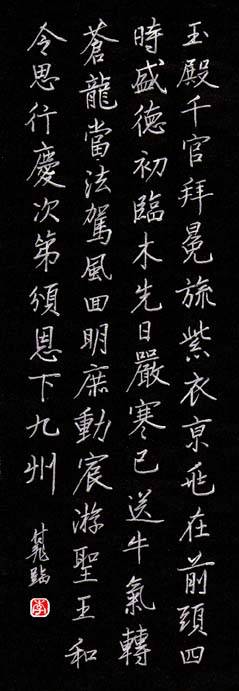 玉殿千官拜冕旒紫衣京兆在前頭四
時盛德初臨木先日嚴寒已送牛氣轉
蒼龍當法駕風回明庶動宸游聖王和
令思行慶次第須恩下九州
臨